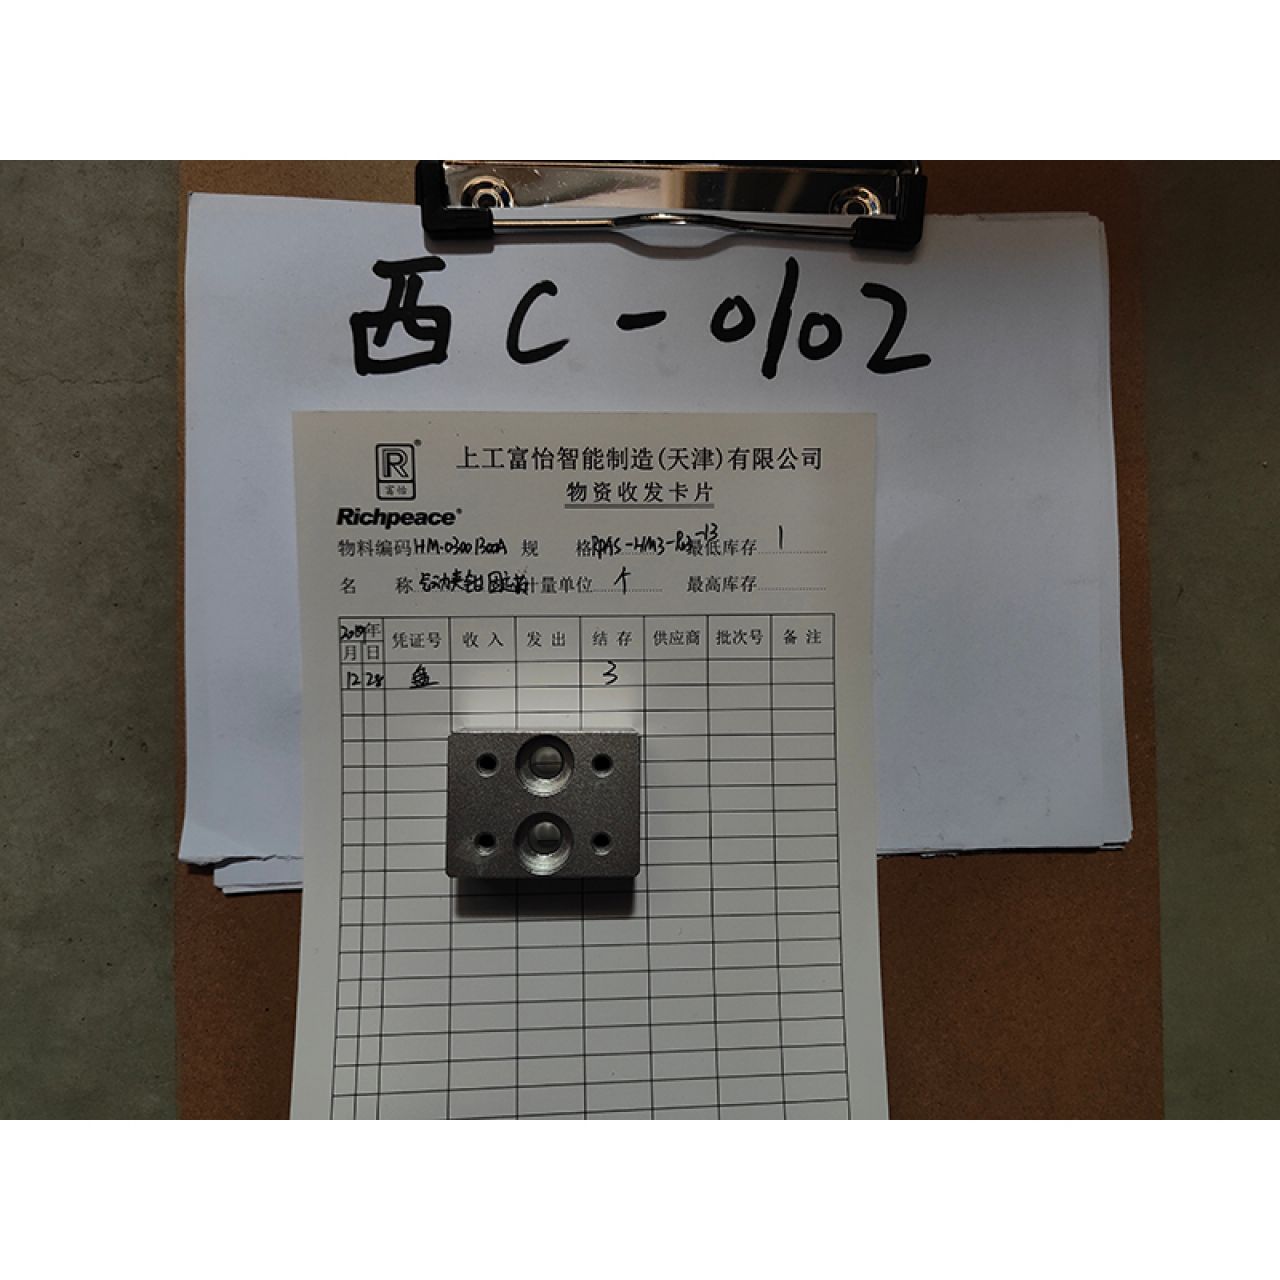 西 C-0102
R
®
富怡
上工富怡智能制造(天津)有限公司
物资收发卡片
Richpeace®
物料编码 HM.03001300A 规 格 最低库存 1
名 称 计量单位 个 最高库存
2019年 凭证号 收入 发出 结存 供应商 批次号 备注
月 日
12 28 盘 3